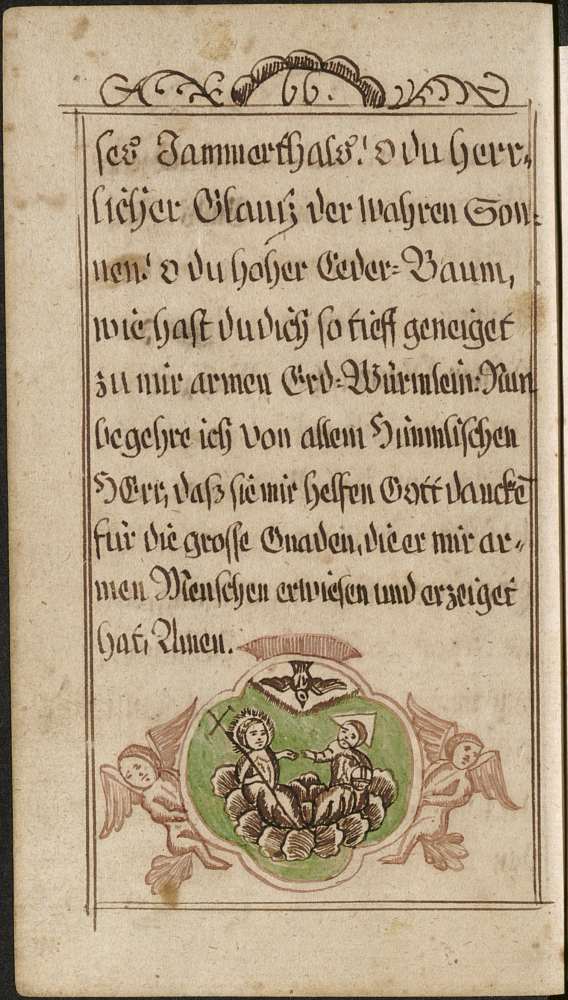 66.
ses Jammerthals! O du herr-
licher Glantz der wahren Son-
nen! O du hoher Ceder-Baum,
wie hast du dich so tieff geneiget
zu mir armen Erd-Würmlein: Nun
begehre ich von allem Himmlischen
HErr, daß sie mir helfen Gott dancke͞
für die grosse Gnaden, die er mir ar-
men Menschen erwiesen und erzeiget
hat, Amen.